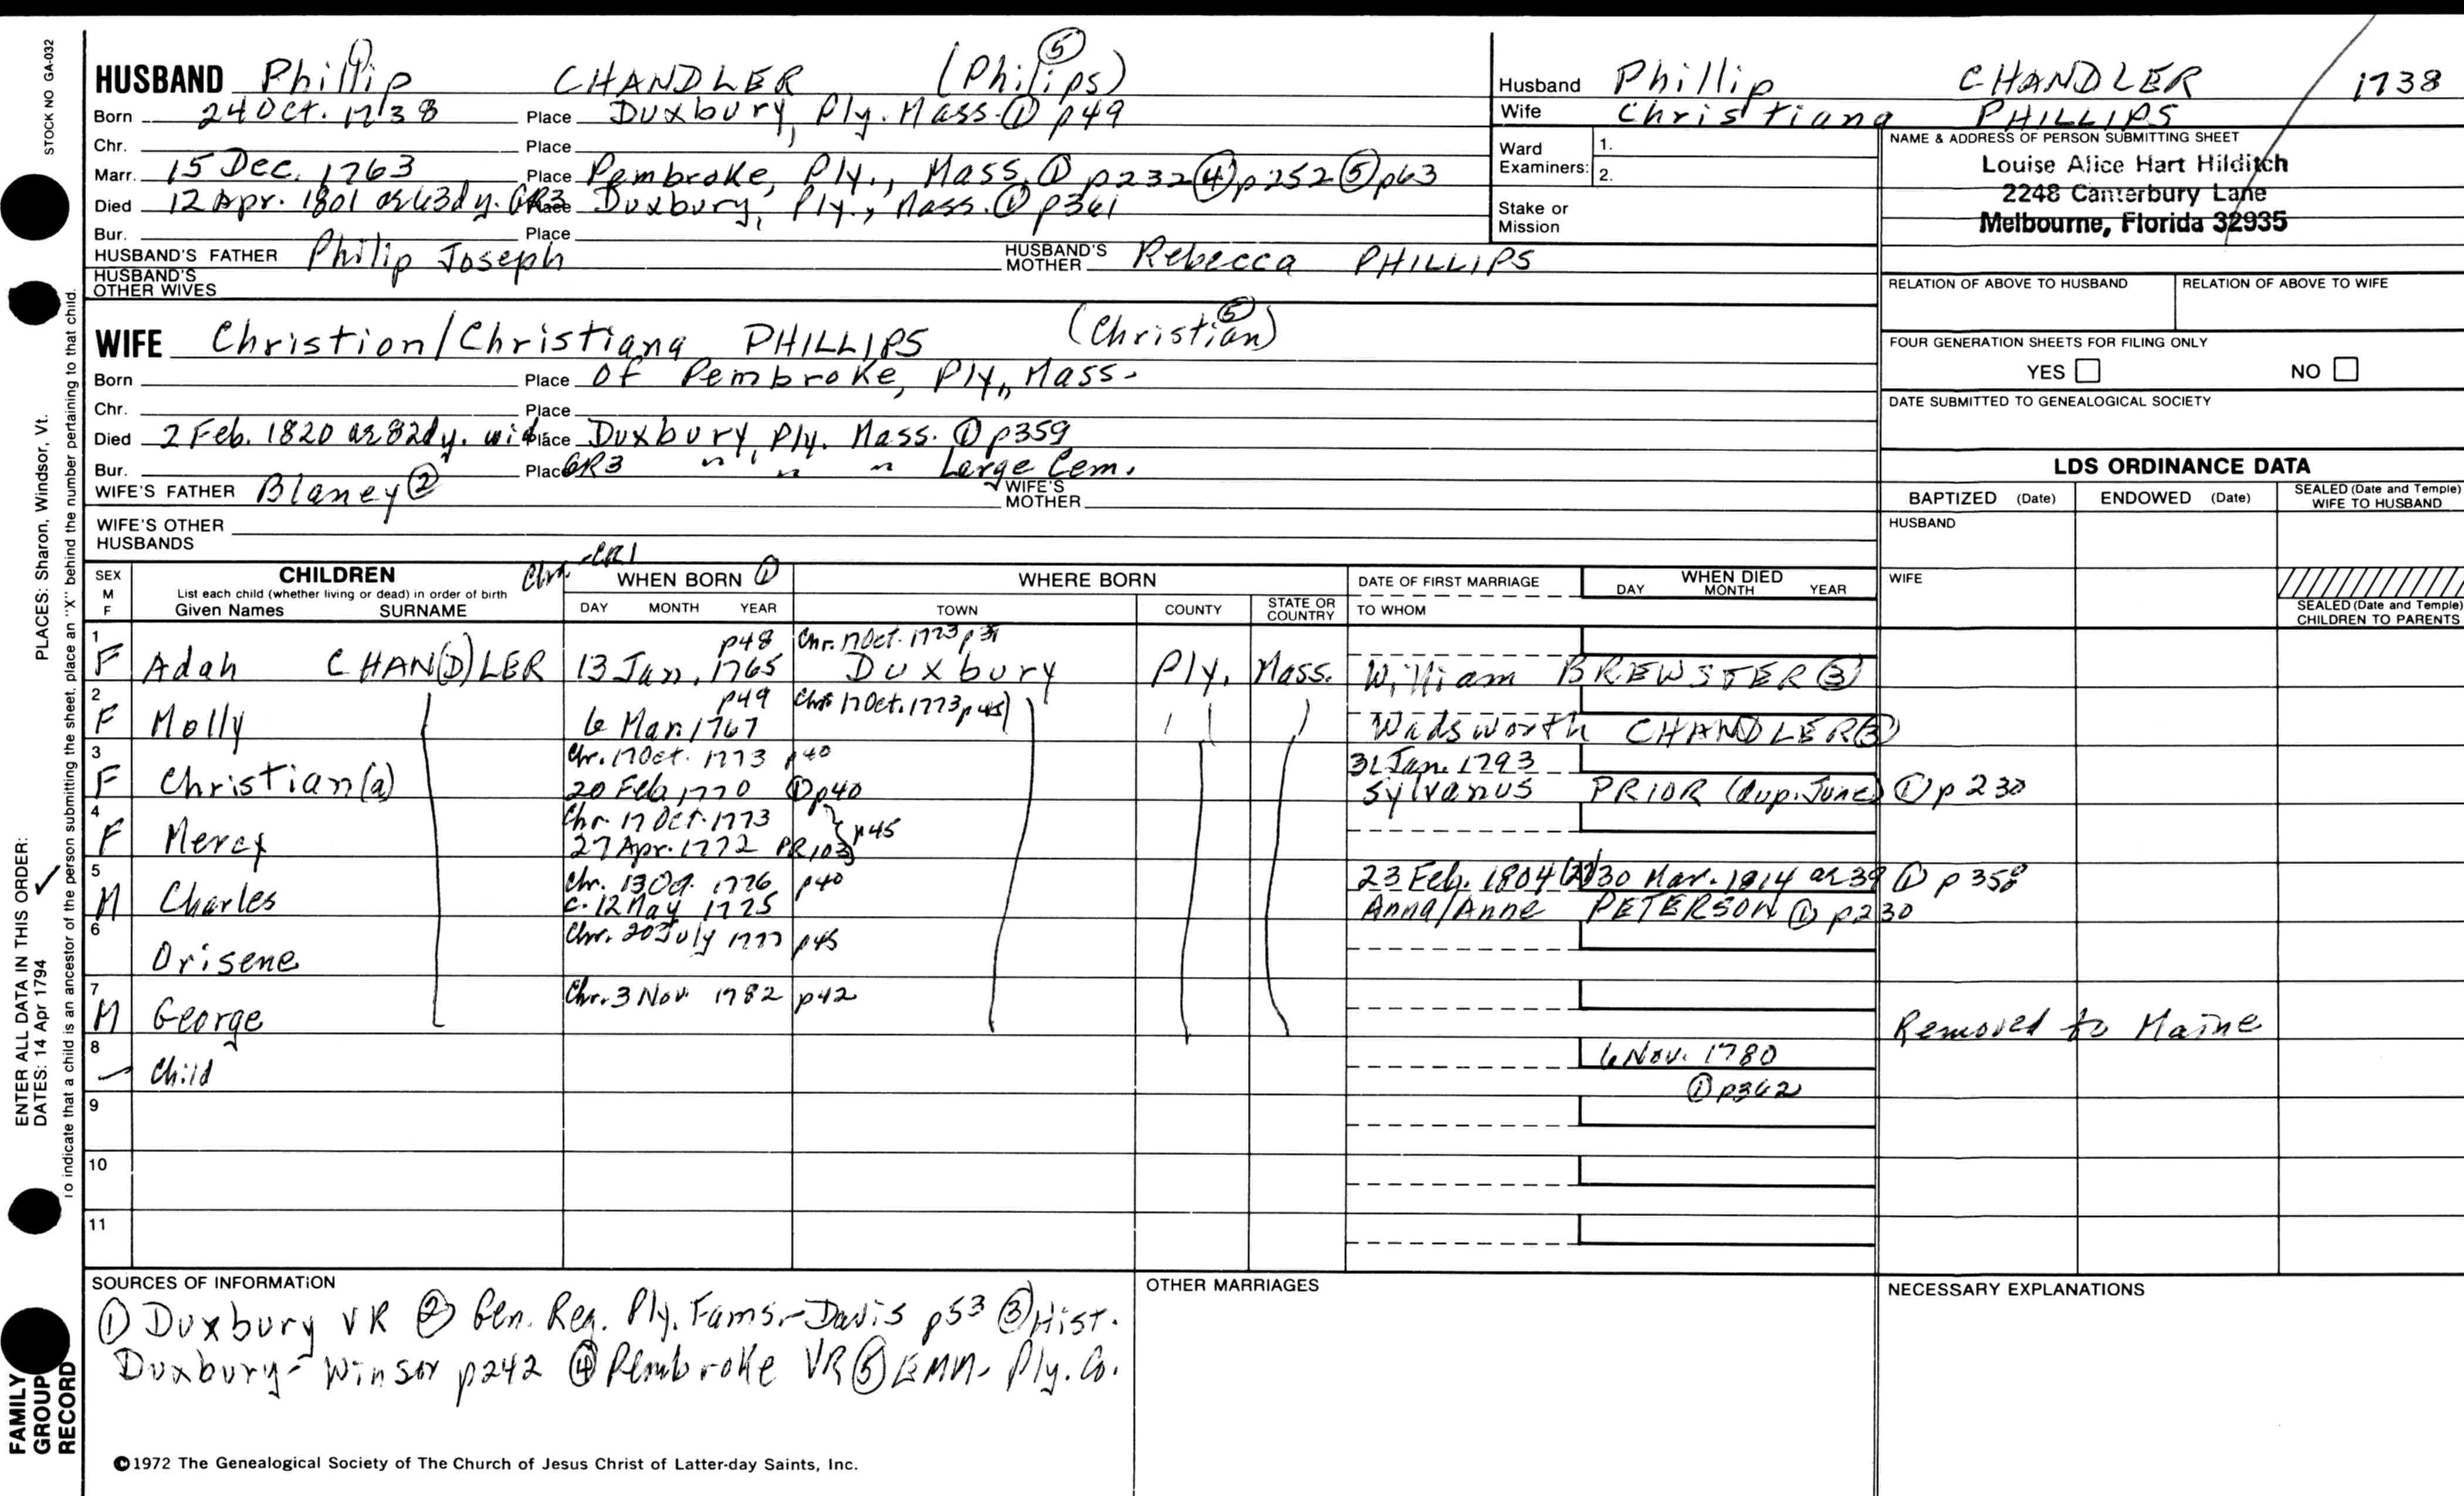 STOCK NO GA-032
PLACES: Sharon, Windsor, Vt.
ENTER ALL DATA IN THIS ORDER:
DATES: 14 Apr 1794
To indicate that a child is an ancestor of the person submitting the sheet, place an "X" behind the number pertaining to that child.
FAMILY GROUP RECORD
HUSBAND Phillip CHANDLER (Philips) ⑤
Born 24 Oct. 1738 Place Duxbury, Ply. Mass. ① p49
Chr. Place
Marr. 15 Dec. 1763 Place Pembroke, Ply., Mass. ① p232 ④ p252 ⑤ p63
Died 12 Apr. 1801 ae 63d y. GR3 Place Duxbury, Ply., Mass. ① p361
Bur. Place
HUSBAND'S FATHER Philip Joseph HUSBAND'S MOTHER Rebecca PHILLIPS
HUSBAND'S OTHER WIVES
WIFE Christion/Christiana PHILLIPS (Christian) ⑤
Born Place of Pembroke, Ply., Mass.
Chr. Place
Died 2 Feb. 1820 ae 82d y. wid. Place Duxbury, Ply. Mass. ① p359
Bur. Place GR3 " " " Large Cem.
WIFE'S FATHER Blaney ② WIFE'S MOTHER
WIFE'S OTHER HUSBANDS
Husband Phillip CHANDLER 1738
Wife Christiana PHILLIPS
Ward Examiners: 1.
2.
Stake or Mission
NAME & ADDRESS OF PERSON SUBMITTING SHEET
Louise Alice Hart Hilditch
2248 Canterbury Lane
Melbourne, Florida 32935
RELATION OF ABOVE TO HUSBAND RELATION OF ABOVE TO WIFE
FOUR GENERATION SHEETS FOR FILING ONLY
YES NO
DATE SUBMITTED TO GENEALOGICAL SOCIETY
LDS ORDINANCE DATA
BAPTIZED (Date) ENDOWED (Date) SEALED (Date and Temple) WIFE TO HUSBAND
HUSBAND
WIFE
SEALED (Date and Temple) CHILDREN TO PARENTS
SEX M F
CHILDREN
List each child (whether living or dead) in order of birth
Given Names SURNAME
CR1
WHEN BORN ①
DAY MONTH YEAR
WHERE BORN
TOWN COUNTY STATE OR COUNTRY
DATE OF FIRST MARRIAGE
TO WHOM
WHEN DIED
DAY MONTH YEAR
1 p48 Chr. 17 Oct. 1773
F Adah CHAN(D)LER 13 Jan. 1765 Duxbury Ply. Mass. William BREWSTER ③
2 p49 Chr. 17 Oct. 1773 p45
F Molly 6 Mar. 1767 Wadsworth CHANDLER ③
3 Chr. 17 Oct. 1773 p40 31 Jan. 1793
F Christian(a) 20 Feb. 1770 ① p40 Sylvanus PRIOR (dup. June) ① p230
4 Chr. 17 Oct. 1773
F Mercy 27 Apr. 1772 PR103 } p45
5 Chr. 13 Oct. 1776 p40 23 Feb. 1804 30 Mar. 1814 ae 39 ① p358
M Charles c. 12 May 1775 Anna/Anne PETERSON ① p230
6 Chr. 20 July 1777 p45
Orisene
7 Chr. 3 Nov. 1782 p42
M George Removed to Maine
8 6 Nov. 1780
Child ① p362
9
10
11
SOURCES OF INFORMATION
① Duxbury VR ② Gen. Reg. Ply. Fams.-Davis p53 ③ Hist.
Duxbury-Winsor p242 ④ Pembroke VR ⑤ EMM- Ply. Co.
OTHER MARRIAGES
NECESSARY EXPLANATIONS
©1972 The Genealogical Society of The Church of Jesus Christ of Latter-day Saints, Inc.